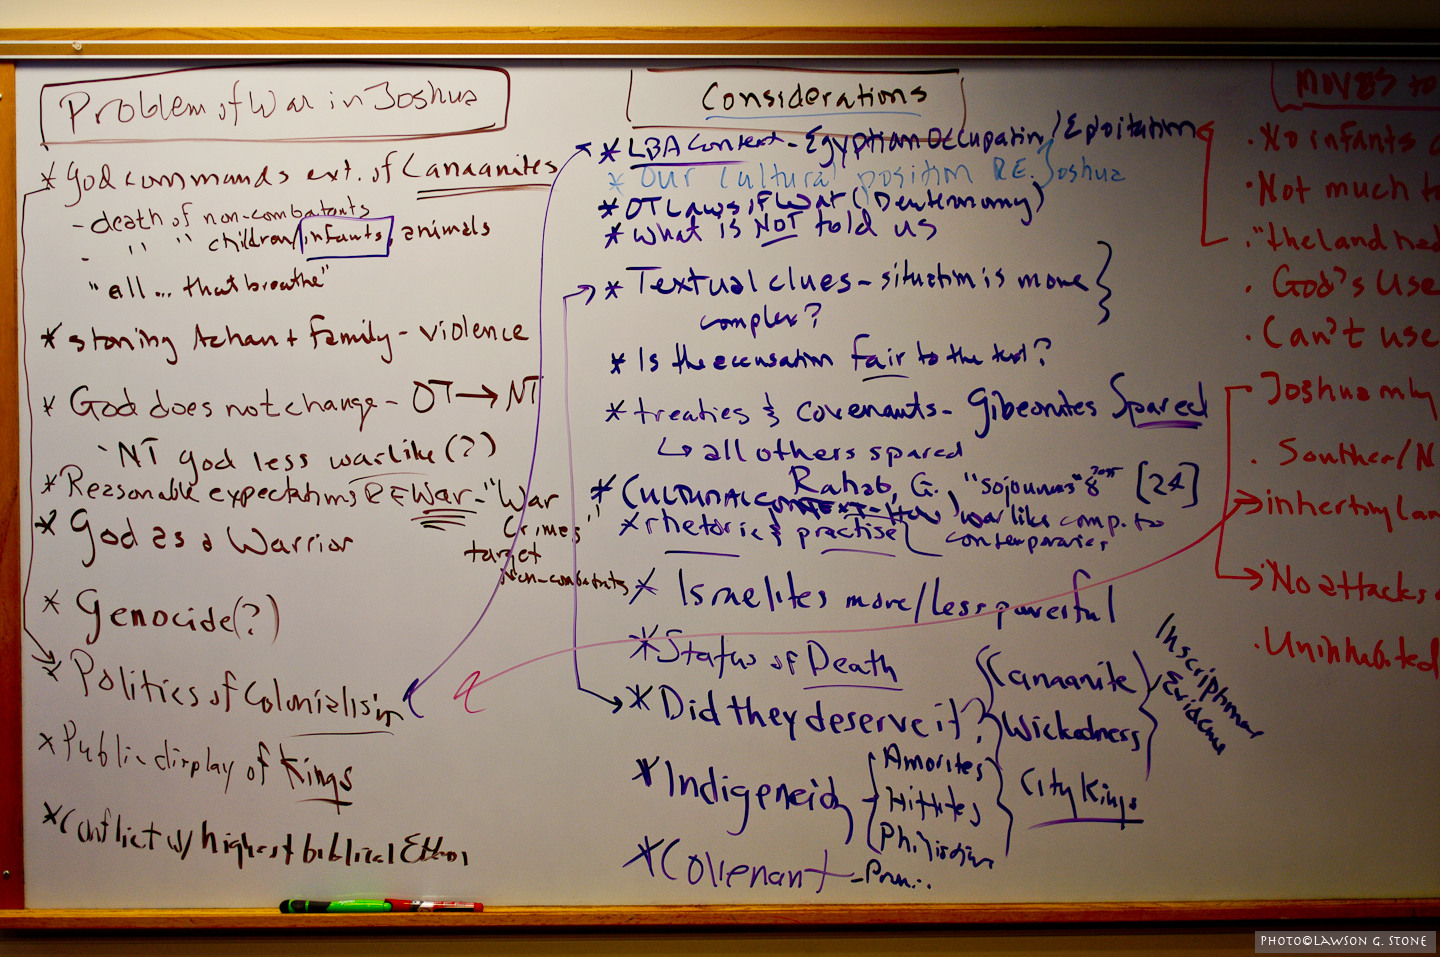 Problem of War in Joshua
* God commands ext. of Canaanites
- death of non-combatants
- " " children/infants, animals
"all... that breathe"
* stoning Achan + Family - violence
* God does not change - OT → NT
NT God less warlike (?)
* Reasonable expectations RE War - "War Crimes"
target
non-combatants
* God as a Warrior
* Genocide (?)
* Politics of Colonialism
* Public display of Kings
* Conflict w/ highest biblical Ethos
Considerations
* LBA Context - Egyptian Occupation/Exploitation
* Our Cultural position RE. Joshua
* OT Laws of War (Deuteronomy)
* What is NOT told us
* Textual clues - situation is more
complex?
* Is the accusation fair to the text?
* treaties & covenants - Gibeonites Spared
↳ all others spared
Rahab, G., "Sojourners" [24]
* CULTURAL CONTEXT - How warlike comp. to
contemporaries
* rhetoric & practise
* Israelites more/less powerful
* Status of Death
* Did they deserve it?
Canaanite
Wickedness
Inscriptional
Evidence
* Indigeneity -
Amorites
Hittites
Philistines
City Kings
* Covenant -
Moves to
• No infants
• Not much
• "the land had
• God's Use
• Can't use
Joshua only
• Souther/N
• inheriting lan
• No attacks
• Uninhabited
PHOTO©LAWSON G. STONE